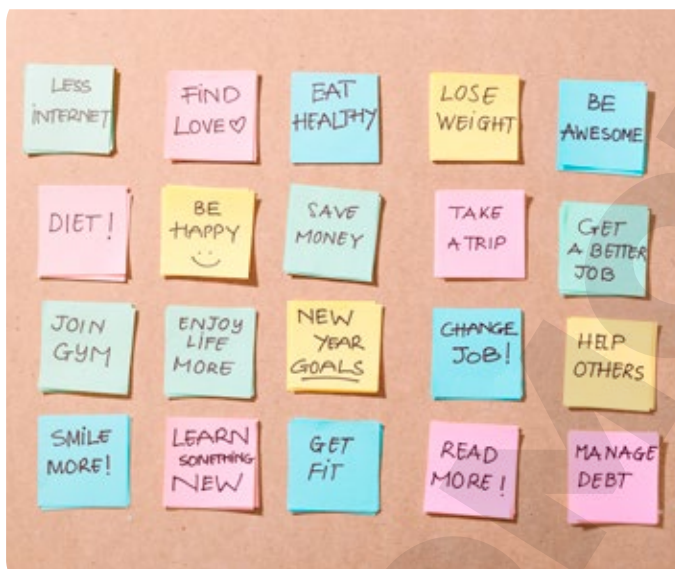 LESS
INTERNET
FIND
LOVE♡
EAT
HEALTHY
LOSE
WEIGHT
BE
AWESOME
DIET!
BE
HAPPY
SAVE
MONEY
TAKE
A TRIP
GET
A BETTER
JOB
JOIN
GYM
ENJOY
LIFE
MORE
NEW
YEAR
GOALS
CHANGE
JOB!
HELP
OTHERS
SMILE
MORE!
LEARN
SOMETHING
NEW
GET
FIT
READ
MORE!
MANAGE
DEBT